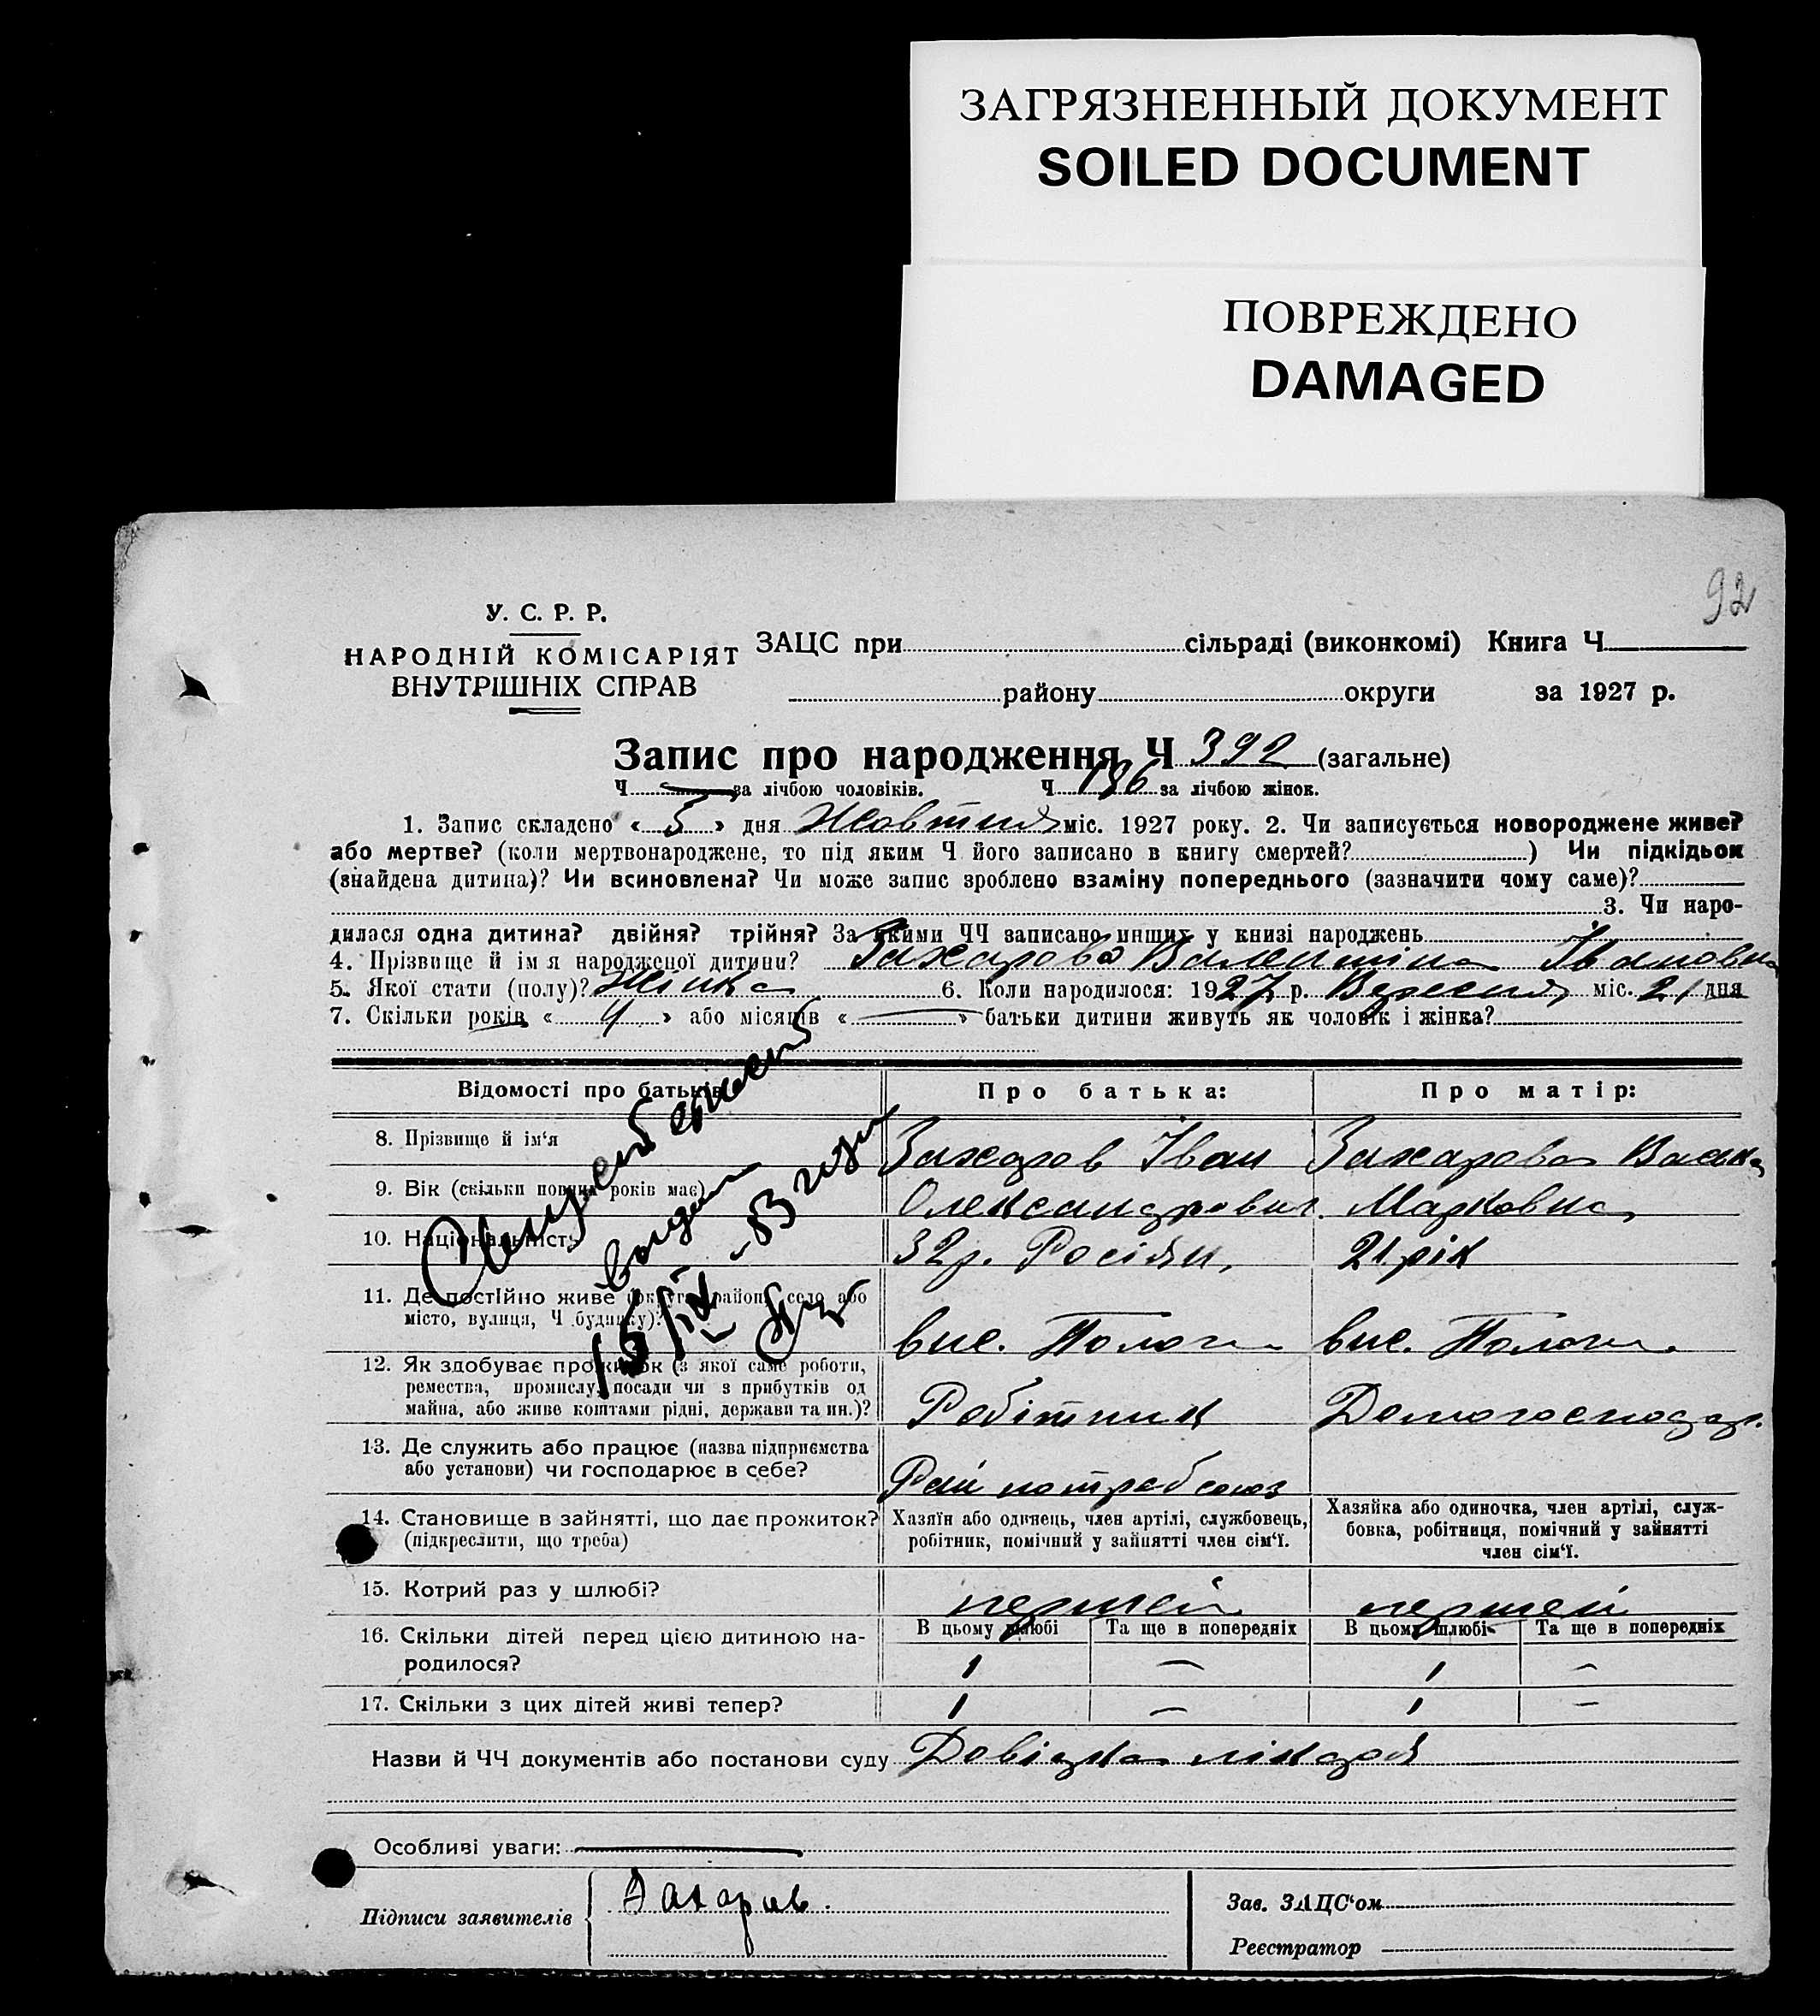 ЗАГРЯЗНЕННЫЙ ДОКУМЕНТ
SOILED DOCUMENT
ПОВРЕЖДЕНО
DAMAGED
92
У. С. Р. Р.
НАРОДНІЙ КОМІСАРІЯТ
ВНУТРІШНІХ СПРАВ
ЗАЦС при сільраді (виконкомі) Книга Ч
району округи за 1927 р.
Запис про народження Ч 392 (загальне)
Ч за лічбою чоловіків. Ч 196 за лічбою жінок.
1. Запис складено « 5 » дня Жовтня міс. 1927 року. 2. Чи записується новороджене живе?
або мертве? (коли мертвонароджене, то під яким Ч його записано в книгу смертей? ) Чи підкідьок
(знайдена дитина)? Чи всиновлена? Чи може запис зроблено взаміну попереднього (зазначити чому саме)?
3. Чи наро-
дилася одна дитина? двійня? трійня? За якими ЧЧ записано инших у книзі народжень
4. Прізвище й ім я народженої дитини? Захарова Валентіна Івановна
5. Якої стати (полу)? Жінка 6. Коли народилося: 1927 р. Вересня міс. 21 дня
7. Скільки років « 4 » або місяців « » батьки дитини живуть як чоловік і жінка?
Відомості про батьків Про батька: Про матір:
8. Прізвище й ім‘я Захаров Іван Захарова
9. Вік (скільки повних років має) Олександрович. Марковна
10. Національність 32 р. Росіян. 21 рік
11. Де постійно живе (округа, район, село або
місто, вулиця, Ч будинку)? вис. Пологи вис. Пологи
12. Як здобуває прожиток (з якої саме роботи,
ремества, промислу, посади чи з прибутків од
майна, або живе коштами рідні, держави та ин.)? Робітник Домогосподар.
13. Де служить або працює (назва підприємства
або установи) чи господарює в себе? Рай потребсоюз
14. Становище в зайнятті, що дає прожиток?
(підкреслити, що треба)
Хазяїн або одинець, член артілі, службовець,
робітник, помічний у зайнятті член сім‘ї.
Хазяйка або одиночка, член артілі, служ-
бовка, робітниця, помічний у зайнятті
член сім‘ї.
15. Котрий раз у шлюбі? першей першей
16. Скільки дітей перед цією дитиною на-
родилося?
В цьому шлюбі Та ще в попередніх В цьому шлюбі Та ще в попередніх
1 — 1 —
17. Скільки з цих дітей живі тепер? 1 — 1 —
Назви й ЧЧ документів або постанови суду Довідка лікаря
Особливі уваги:
Підписи заявителів Захаров.
Зав. ЗАЦС‘ом
Реєстратор